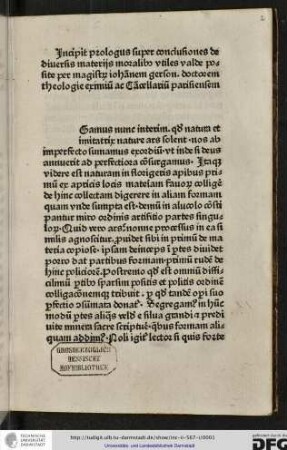 Incipit prologus super conclusiones de
diuersis materijs moralibꝰ vtiles valde po
site per magistꝝ iohãnem gerson . doctorem
theologie eximiũ ac Cãcellariũ parisiensem
Gamus nunc interim . qđ natura et
imitatrix nature ars solent . nos ab
imperfecto sumamus exordiũ vt inde si deus
annuerit ad perfectiora cõsurgamus . Itaqꝫ
videre est naturam in florigeris apibus pri
mũ ex apticis locis materiam fauoꝝ colligẽ
de hinc collectam digerere in aliam formam
quam vnde sumpta est . demũ in alueolo cõsti
pantur miro ordinis artificio partes singu
loꝝ . Quid vero ars? nonne processus in ea si
milis agnoscitur . ꝓuidet sibi in primũ de ma
teria copiose . ipsam deinceps ĩ ptes diuidet
porro dat partibus formam . primũ rudẽ de
hinc policiorẽ . Postremo qđ est ommũ diffi
cilimũ ptibꝰ sparsim positis et politis ordinẽ
colligacõnemqꝫ tribuit .
modũ ptes aliqͣs velđ e silua grandi et predi
uite nimera sacre scripture . qͥbus formam ali
quam addimꝰ . Noli igit lector si quis forte
GROSHERZOGLICH
HESSISCHE
HOFBIBLIOTHEK
http://tudigit.ulb.tu-darmstadt.de/show/inc-ii-567-c/0001
Universitäts- und Landesbibliothek Darmstadt
DFG